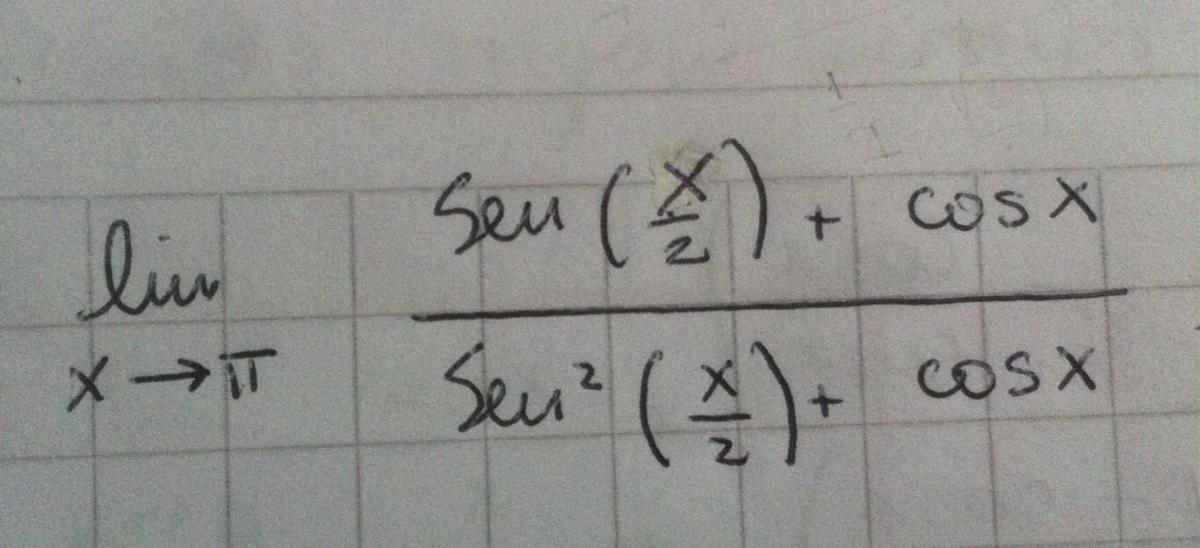 lim x→π (sen(x/2) + cos x) / (sen²(x/2) + cos x)